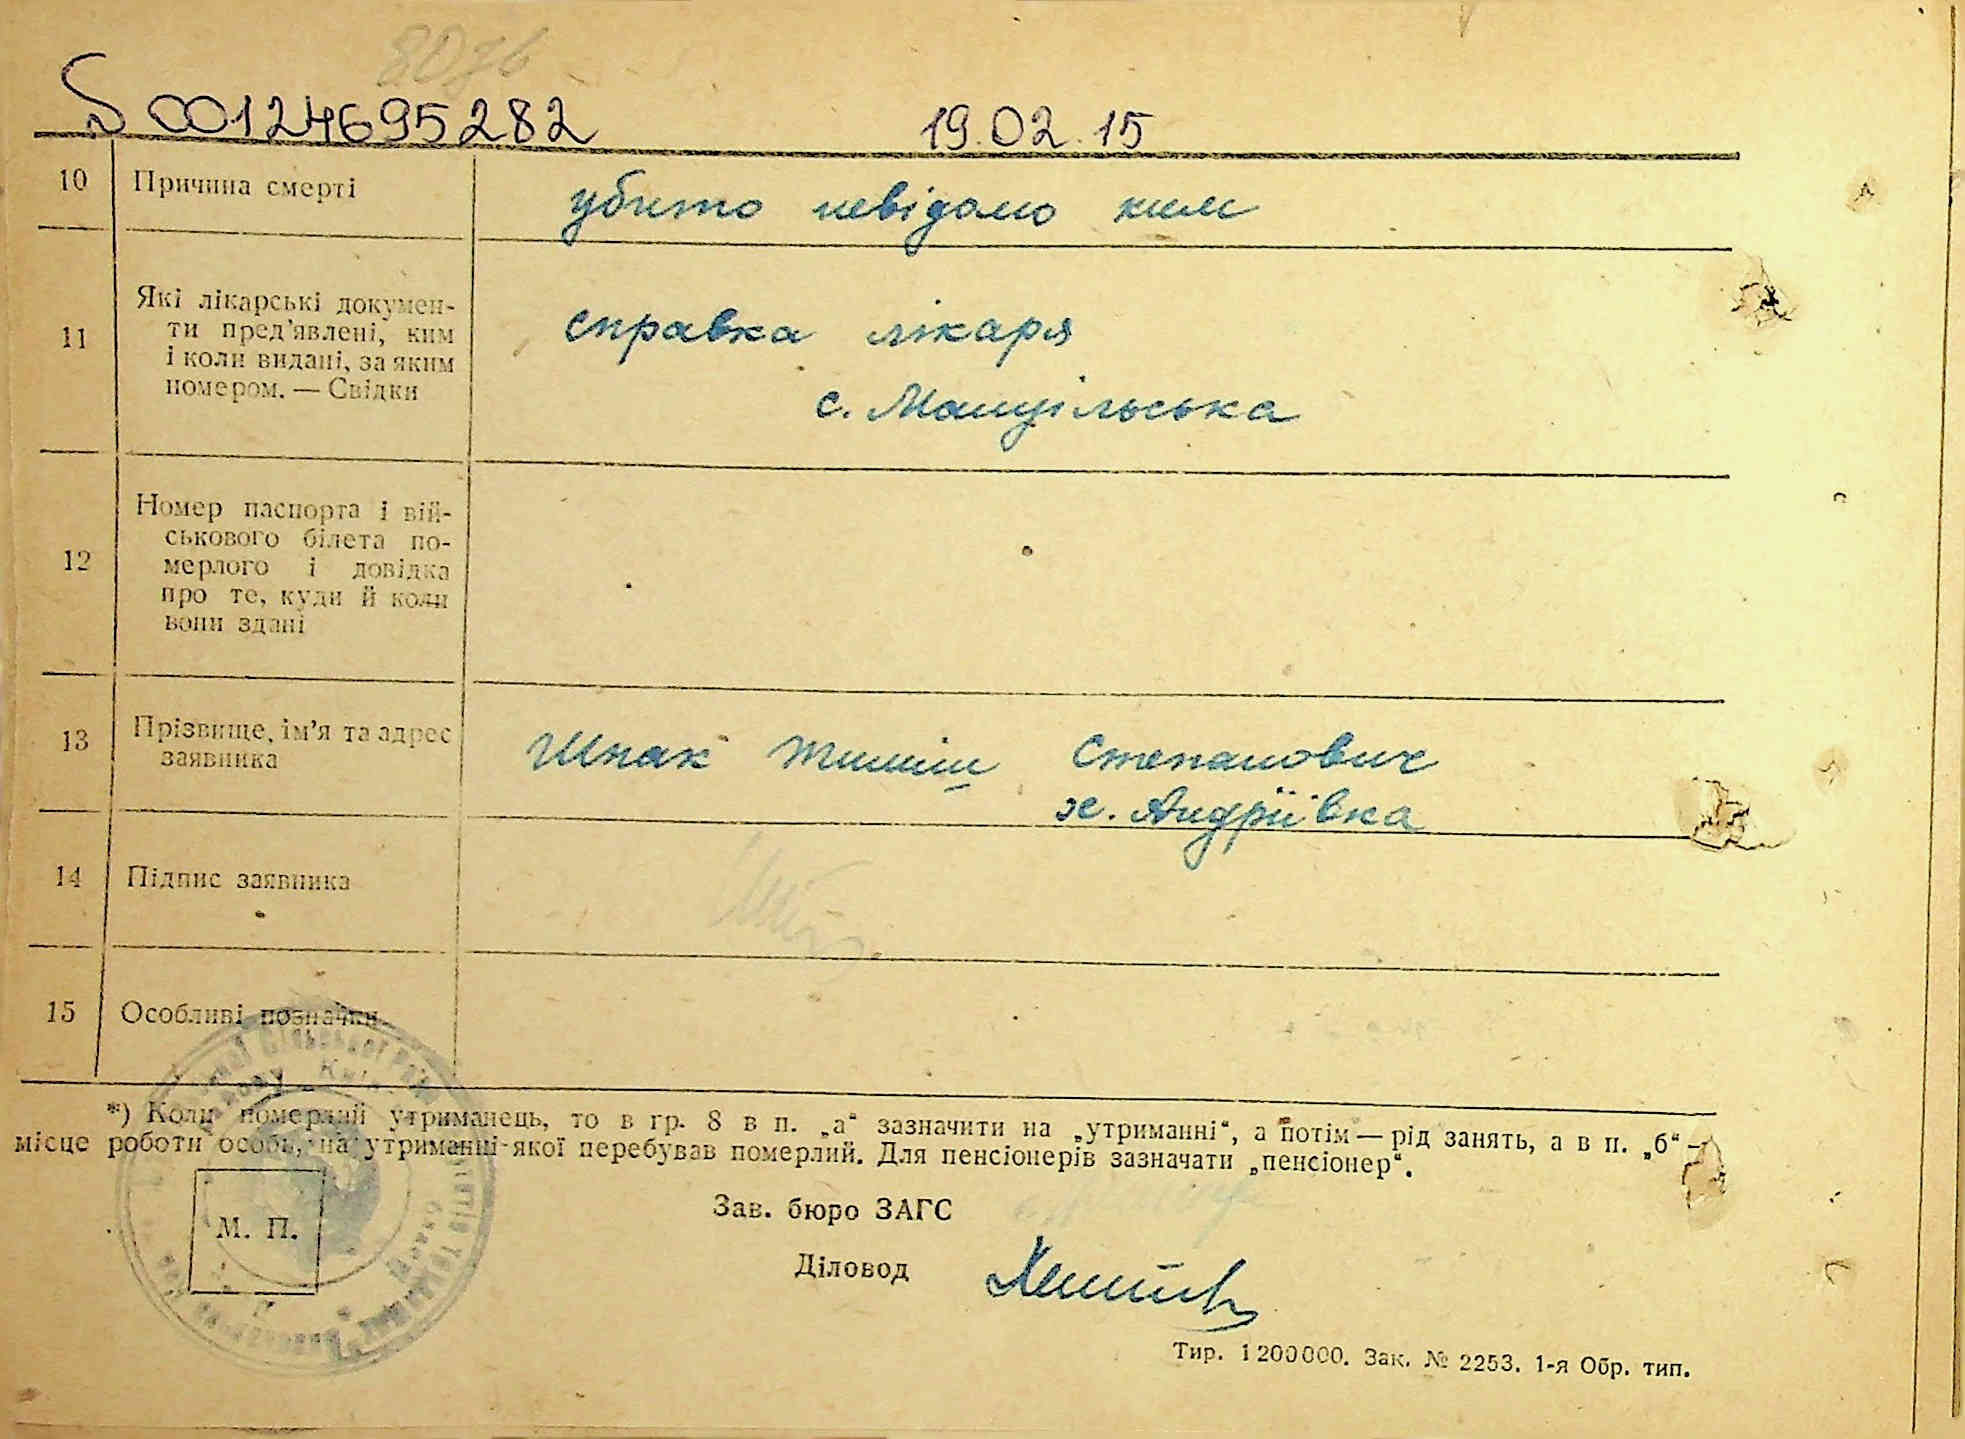 S00124695282 19.02.15
10 Причина смерті убито невідомо ким
11 Які лікарські докумен-
ти пред'явлені, ким
і коли видані, за яким
номером. — Свідки
справка лікаря
с. Манцільська
12 Номер паспорта і вій-
ськового білета по-
мерлого і довідка
про те, куди й коли
вони здані
13 Прізвище, ім'я та адрес
заявника
Шпак Тиміш Степанович
х. Андріївка
14 Підпис заявника
15 Особливі позначки
*) Коли померлий утриманець, то в гр. 8 в п. „а“ зазначити на „утриманні“, а потім — рід занять, а в п. „б“ —
місце роботи особи, на утриманні якої перебував померлий. Для пенсіонерів зазначати „пенсіонер“.
М. П.
Зав. бюро ЗАГС
Діловод
Тир. 1200000. Зак. № 2253. 1-я Обр. тип.